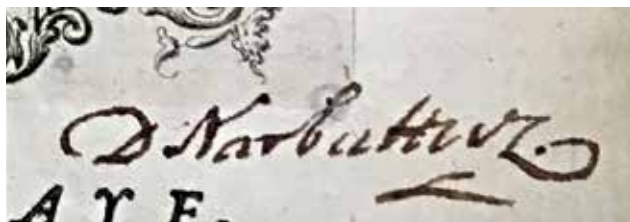 D Narbuttwz.
A Y E.